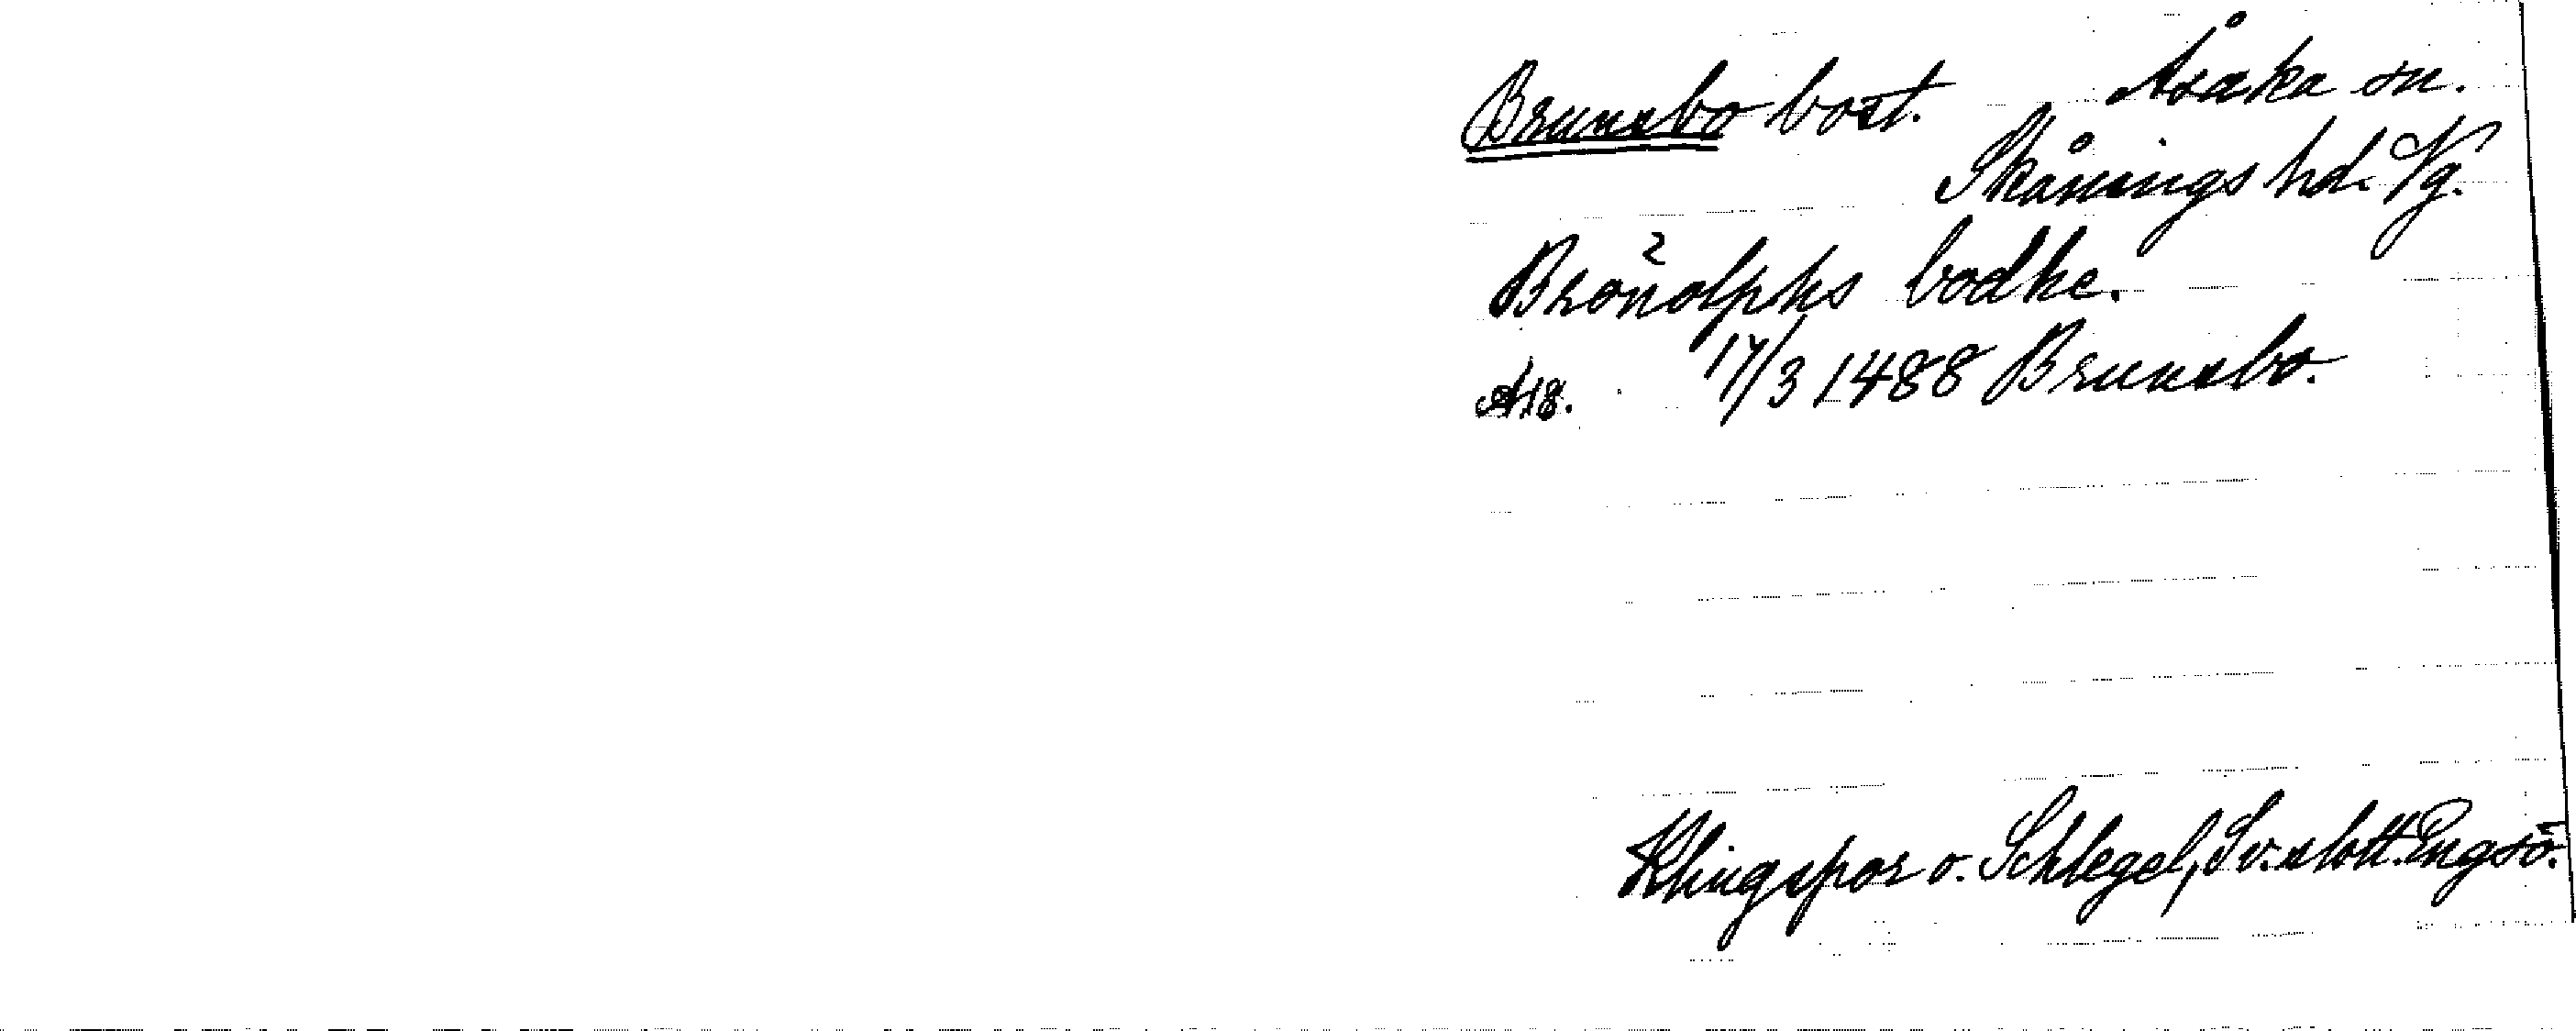 Brunsbo bost. Åsaka sn.
Skånings hd. Vg.
Brönolphs bodhe.
A18. 17/3 1488 Brunsbo.
Klingspor o. Schlegel, Sv. slott. Engsö.